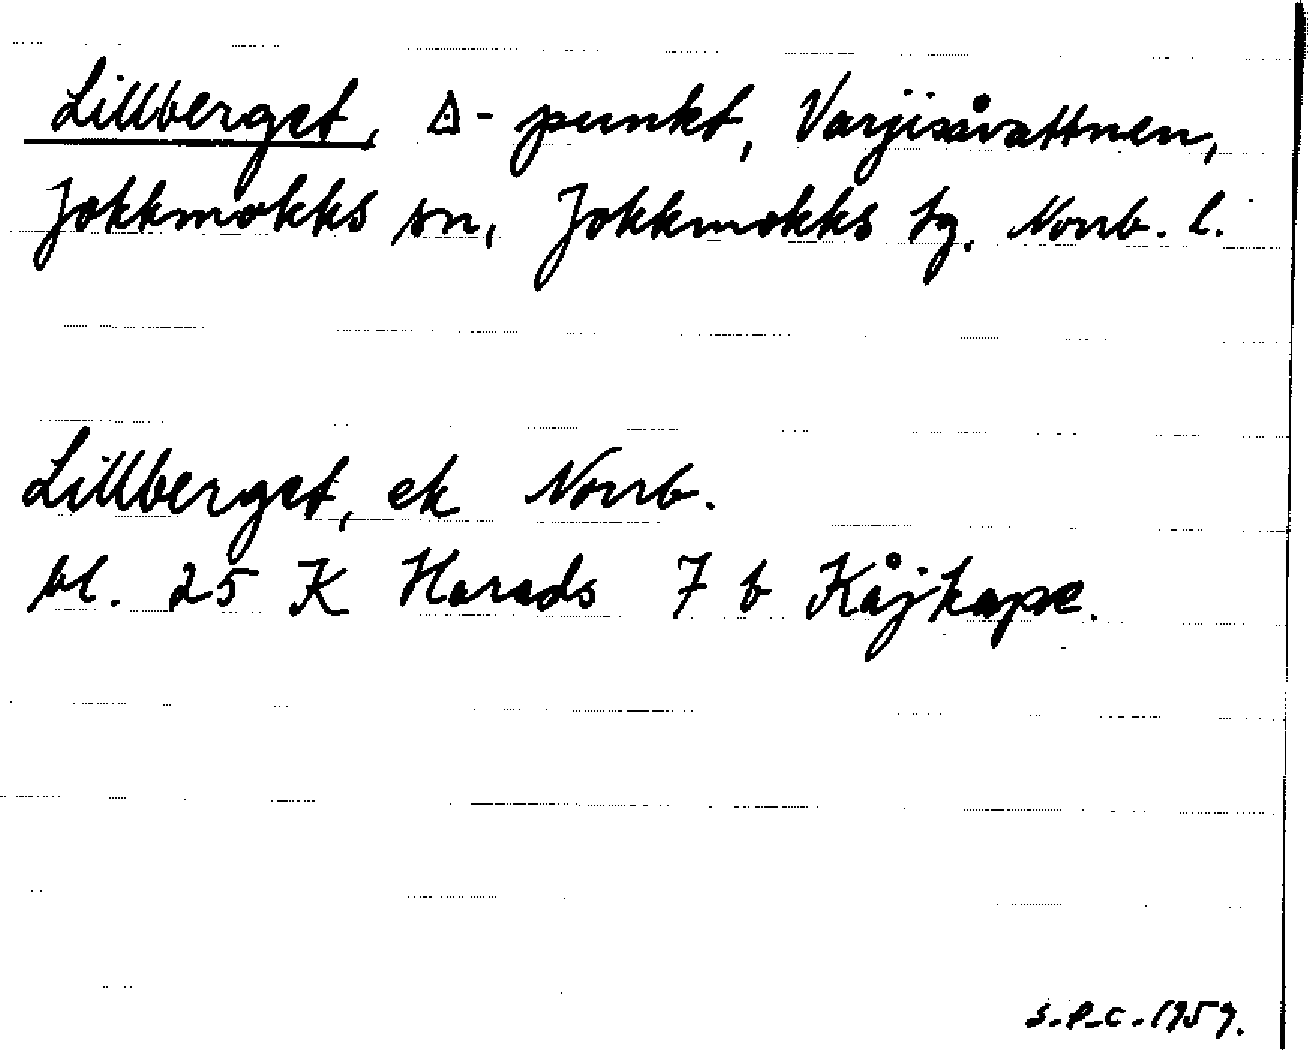 Lillberget, △-punkt, Varjisåvattnen,
Jokkmokks sn, Jokkmokks tg. Norrb. l.
Lillberget, ek Norrb.
bl. 25 K Harads 7 b Kåjkape.
S.P.C. 1959.